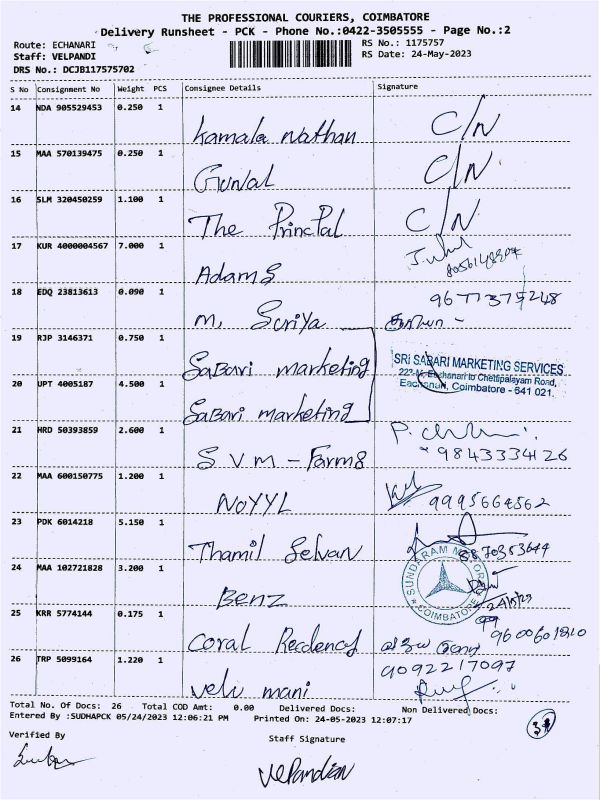 THE PROFESSIONAL COURIERS, COIMBATORE
Delivery Runsheet - PCK - Phone No.:0422-3505555 - Page No.:2
Route: ECHANARI
RS No.: 1175757
Staff: VELPANDI
RS Date: 24-May-2023
DRS No.: DCJB117575702
S No Consignment No Weight PCS Consignee Details Signature
14 NDA 905529453 0.250 1
Kamala Nathan C/N
15 MAA 570139475 0.250 1
Gunal C/N
16 SLM 320450259 1.100 1
The Princpal C/N
17 KUR 4000004567 7.000 1
Adams
18 EDQ 23813613 0.090 1 9677375248
M, Suriya
19 RJP 3146371 0.750 1
SaBari marketing
SRI SABARI MARKETING SERVICES
Eachanari to Chettipalayam Road,
Eachanari, Coimbatore - 641 021.
20 UPT 4005187 4.500 1
SaBari marketing
21 HRD 50393859 2.600 1
S V M - Farms 9843334126
22 MAA 600150775 1.200 1
NOYYL 9995664562
23 PDK 6014218 5.150 1
Thamil Selvan
24 MAA 102721828 3.200 1
SUNDARAM MOTORS
COIMBATORE
Benz
25 KRR 5774144 0.175 1
Coral Recdency 9600601810
26 TRP 5099164 1.220 1 9092217097
velu mani
Total No. Of Docs: 26 Total COD Amt: 0.00 Delivered Docs: Non Delivered Docs:
Entered By :SUDHAPCK 05/24/2023 12:06:21 PM Printed On: 24-05-2023 12:07:17
Verified By
Staff Signature
VelPandian